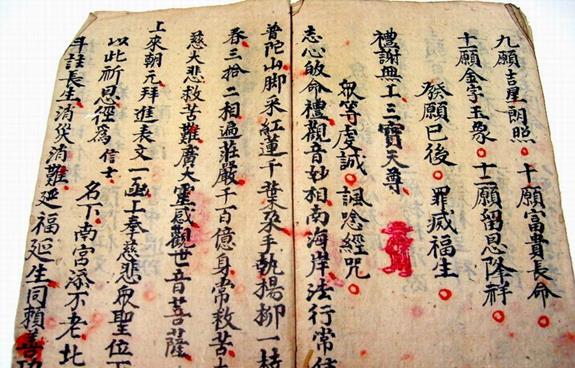 九願吉星朗照。十願富貴長命。
十願金字玉彔。十二願留恩降祥。
發願已後。罪滅福生。
禮謝無工三寶天尊。
眾等虔誠。諷唸經咒。
志心皈命禮觀音妙相南海岸法行常
普陀山脚采紅蓮千葉朶手執揚柳一枝
春三拾二相遍莊嚴千百億身常救苦
慈大悲救苦難廣大靈感觀世音菩薩
上來朝元拜進表文一函上奉慈悲眾聖位
以此祈恩經為信士 名下南宮添不老北
斗註長生消災消難延福延生同賴善功